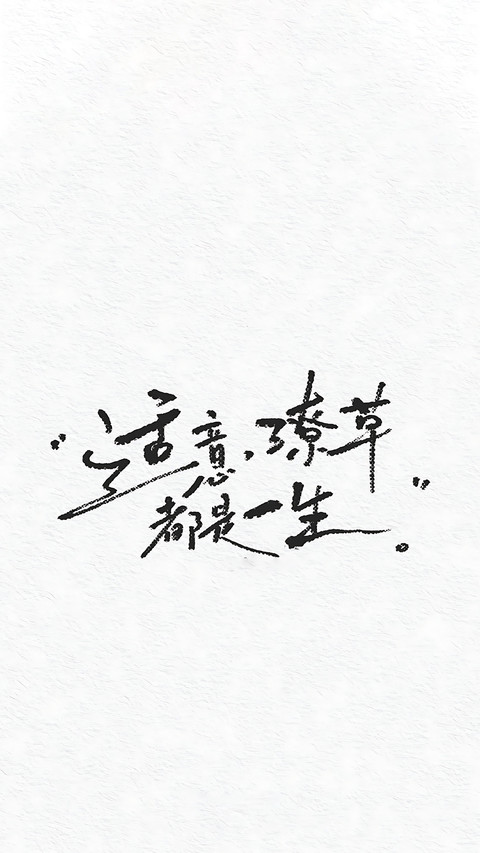 “适意，潦草”
都是一生。